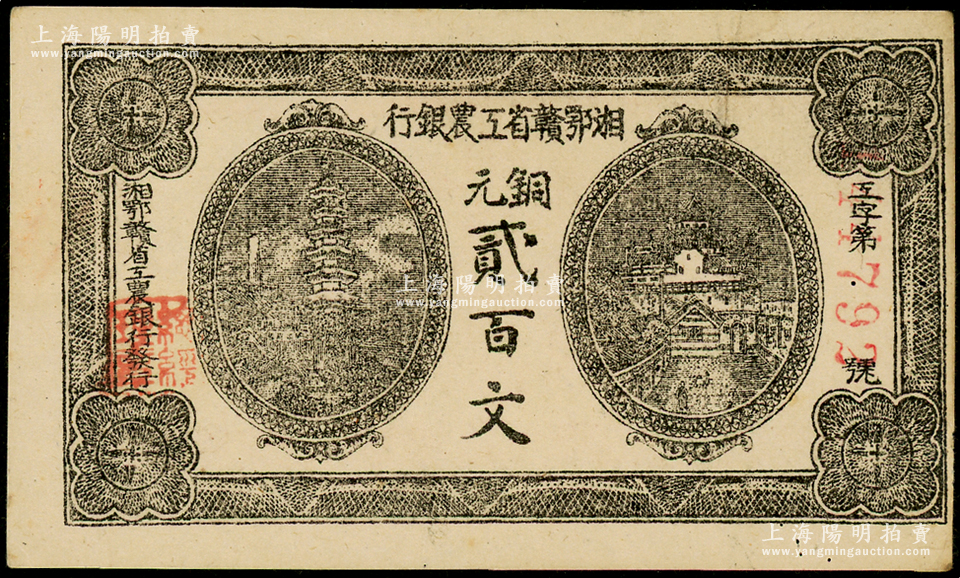 上海陽明拍賣
www.yangmingauction.com
湘鄂贛省工農銀行
銅元
貳百文
工字第
號
11792
湘鄂贛省工農銀行發行
上海陽明拍賣
www.yangmingauction.com
上海陽明拍賣
www.yangmingauction.com